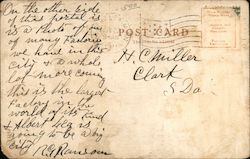 On the other side
of this postal is
is a Photo of one
of many Factories
we have in this
City & a whole
lot more coming
this is the largest
Factory in the
world of its kind
& Albert Lea is
going to be a big
City R.G. Ransom
POST CARD
H. C. Miller
Clark
S Da